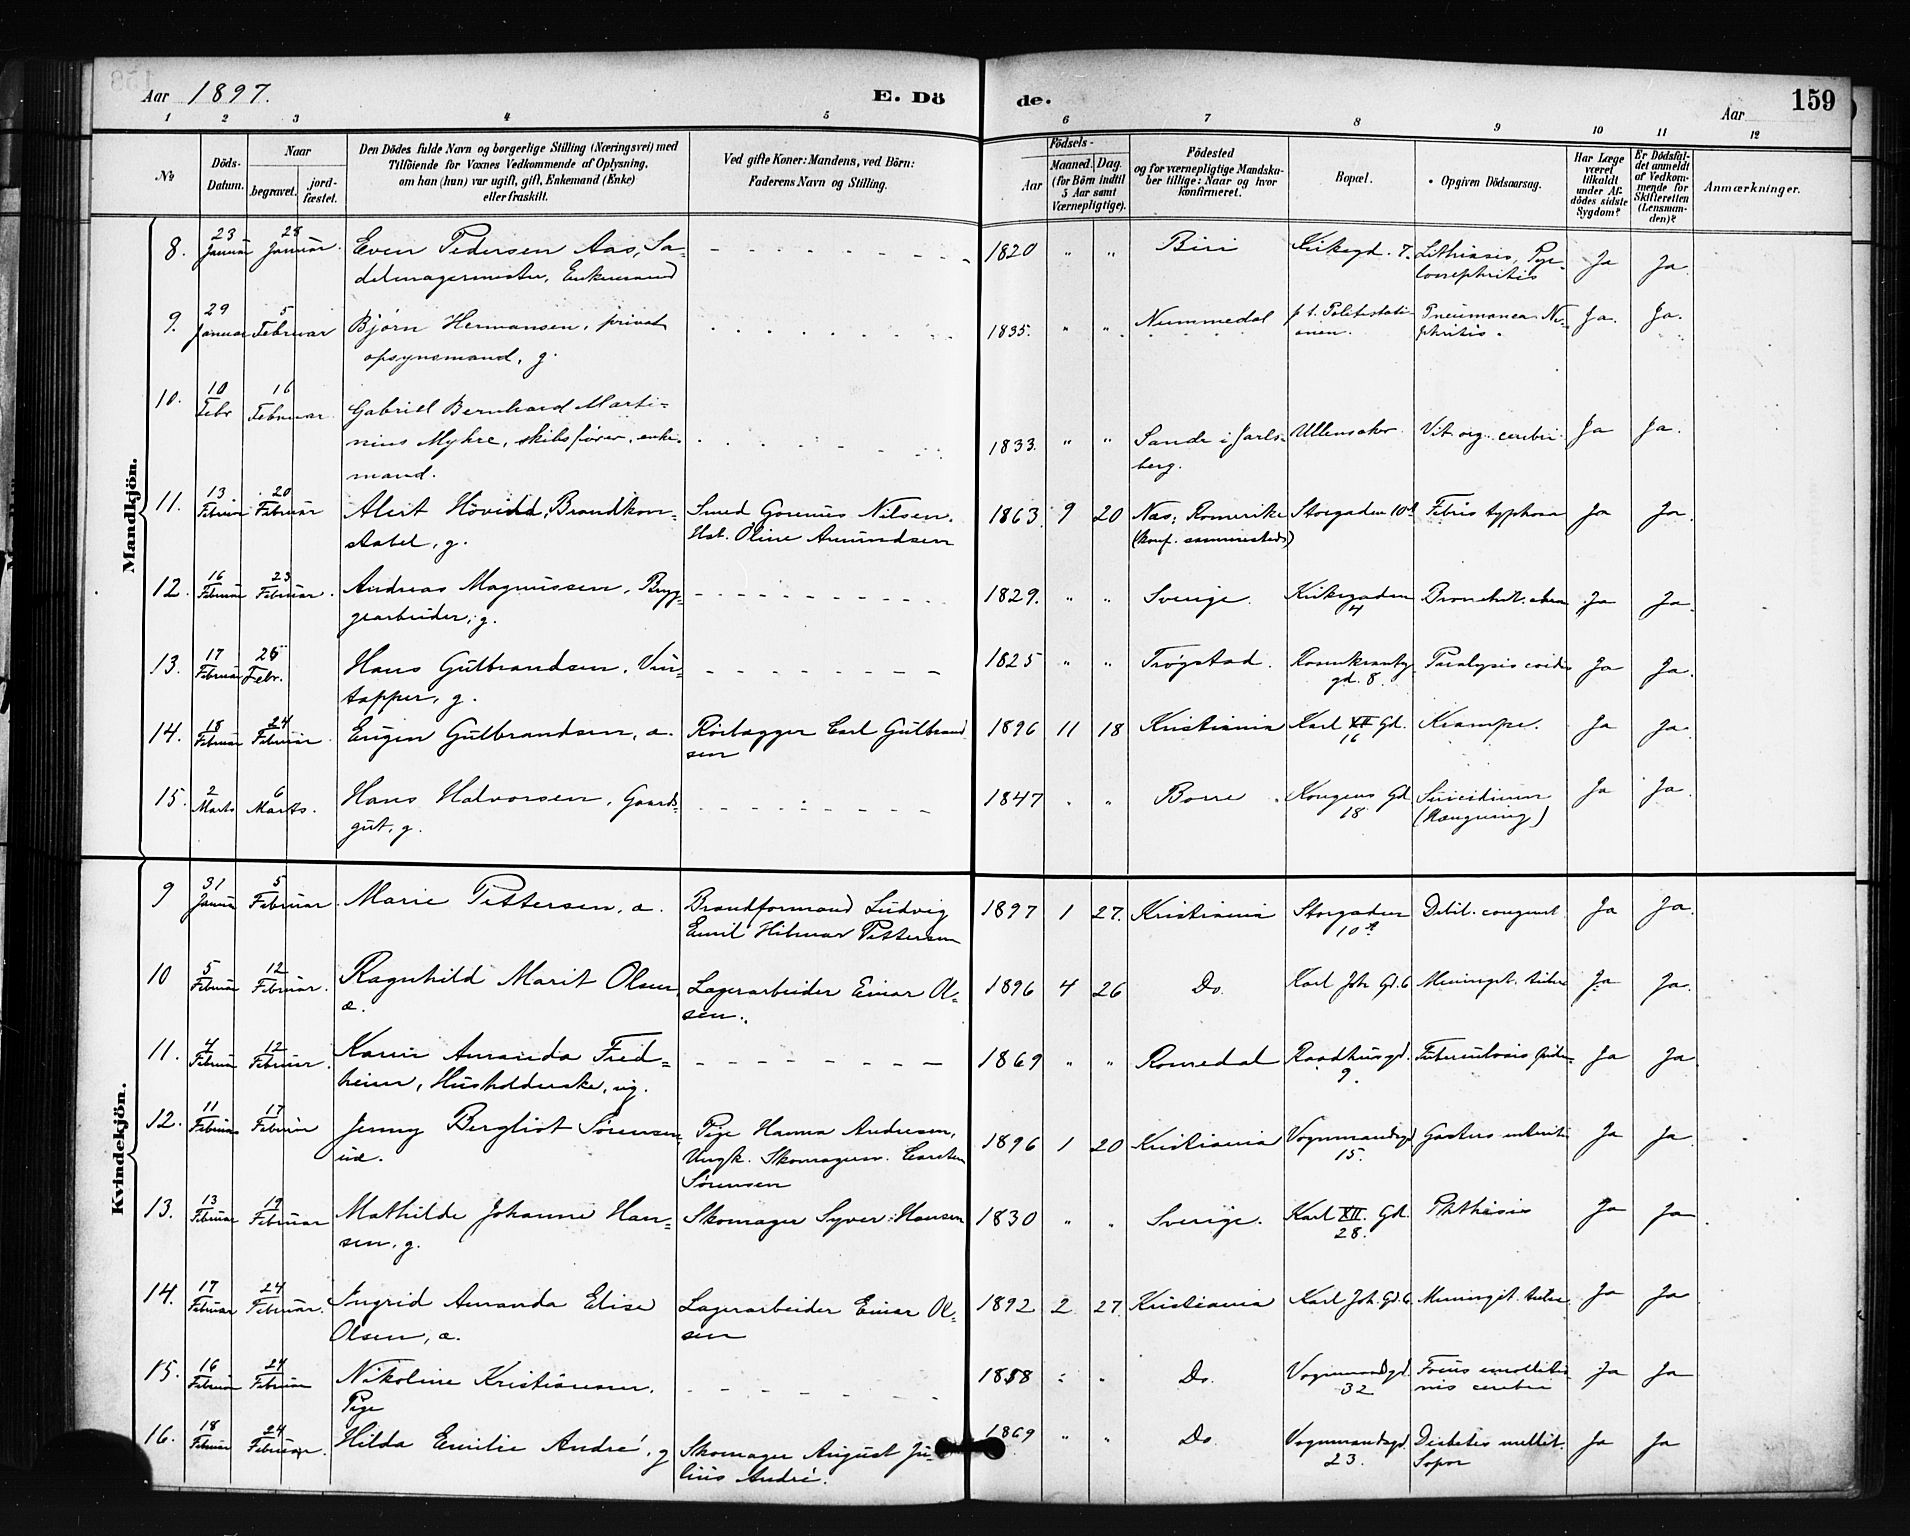 Aar 1897.
E. Dö
de.
Aar
159
1 2 3 4 5 6 7 8 9 10 11 12
No
Döds-
Datum.
Naar
begravet.
jord-
fæstet.
Den Dödes fulde Navn og borgerlige Stilling (Næringsvei) med
Tilföiende for Voxnes Vedkommende af Oplysning,
om han (hun) var ugift, gift, Enkemand (Enke)
eller fraskilt.
Ved gifte Koner: Mandens, ved Börn:
Faderens Navn og Stilling.
Födsels-
Aar
Maaned. Dag.
(for Börn indtil
5 Aar samt
Værnepligtige).
Födested
og for værnepligtige Mandska-
ber tillige: Naar og hvor
konfirmeret.
Bopæl.
Opgiven Dödsaarsag.
Har Læge
været
tilkaldt
under Af-
dödes sidste
Sygdom?
Er Dödsfal-
det anmeldt
af Vedkom-
mende for
Skifteretten
(Lensman-
den)?
Anmærkninger.
Mandkjön.
8. 23 Januar 28 Januar. Even Pedersen Aas, Sa- 1820 " " Biri Kirkegd. 7. Lithiasis, Pye- Ja Ja
delmagermester, Enkemand lonephritis
9. 29 Januar 5 Februar Bjørn Hermansen, privat 1835. " " Nummedal p.t. Politistati- Pneumonea. Ne- Ja. Ja.
opsynsmand, g. onen. phritis.
10. 10 Febr 16 Februar Gabriel Bernhard Marti-
nius Myhre, skibsfører, enke- 1833. " " Sande i Jarls- Ullensaker. Vit. org. cerebri Ja Ja.
mand. berg.
11. 13 Februar 20 Februar Alert Hövidd, Brandkon- Smed Gonnus Nilsen. 1863 9 20 Næs, Romerike Storgaden 10 Febris typhosa Ja Ja.
stabel, g. Hst. Oline Amundsen (Konf. sammesteds)
12. 16 Februar 23 Februar. Andreas Magnussen, Bryg- 1829. " " Sverige. Kirkegaden Ja Ja.
gearbeider, g. 4
13. 17 Februar 26 Febr. Hans Gulbrandsen, Vin- 1825 " " Trøgstad. Rosenkrantz Paralysis cordis Ja Ja.
tapper, g. gd. 8.
14. 18 Februar 24 Februar Eugen Gulbrandsen, æ. Rörlægger Carl Gulbrand 1896 11 18 Kristiania Karl XII Gd. Krampe. Ja Ja.
sen 16
15. 2 Marts 6 Marts. Hans Halvorsen, Gaards- 1847 " " Borre Kongens Gd Suicidium Ja Ja.
gut, g. 18 (Hængning)
Kvindekjön.
9 31 Januar 5 Februar Marie Pettersen, æ. Brandformand Ludvig 1897 1 27. Kristiania Storgaden Debil. congenit Ja Ja.
Emil Hilmar Pettersen 10 A
10 5 Februar 12 Februar. Ragnhild Marit Olsen, Lagerarbeider Einar Ol- 1896 4 26 Do. Karl Joh Gd. 6 Meningit. tuber Ja Ja.
æ. sen.
11. 4 Februar 12 Februar. Karin Amanda Fred- 1869 " " Romedal Raadhusgd. Tuberculosis Ja Ja
heim, Husholderske, ug. 9.
12. 11 Februar 17 Februar Jenny Bergliot Sörensen, Pige Hanna Andresen, 1896 1 20 Kristiania Vognmandsgd Gastro enterit Ja Ja.
uæ. Ungk. Skomagersv. Carsten 15.
Sörensen
13. 13 Februar 19 Februar Mathilde Johanne Han- Skomager Syver Hansen 1830 " " Sverige. Karl XII. Gd. Phthisis Ja Ja
sen, g. 28.
14. 17 Februar 24 Februar. Ingrid Amanda Elise Lagerarbeider Einar Ol- 1892 2 27. Kristiania Karl Joh. Gd. 6 Meningit. tuber. Ja Ja
Olsen, æ. sen
15. 16 Februar 24 Februar Nikoline Kristiansen, 1858 " " Do. Vognmandsgd. Focus emollitio Ja Ja
Pige 32 nis cerebri
16. 18 Februar 24 Februar. Hilda Emilie André, g Skomager August Ju- 1869 " " Do. Vognmandsgd. Diabetes mellit. Ja Ja
lius André. 23. Sopor